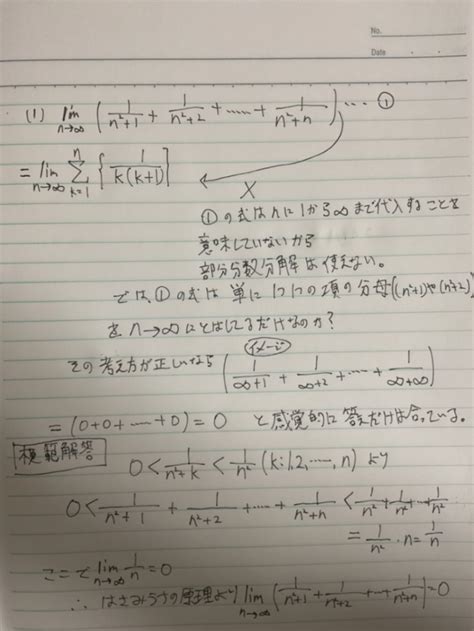 No.
Date
(1) lim n→∞ (1/(n²+1) + 1/(n²+2) + ...... + 1/(n²+n)) ... ①
= lim n→∞ Σ k=1 n {1/(k(k+1))}
×
①の式はnに1から∞まで代入することを
意味していないから
部分分数分解は使えない。
では、①の式は単に1つ1つの項の分母((n²+1)や(n²+2))
をn→∞にとばしてるだけなのか?
イメージ
その考え方が正しいなら (1/(∞+1) + 1/(∞+2) + ... + 1/(∞+∞))
= (0+0+ ... +0) = 0 と感覚的に答えだけは合っている。
模範解答
0 < 1/(n²+k) < 1/n² (k:1,2,……,n) より
0 < 1/(n²+1) + 1/(n²+2) + ... + 1/(n²+n) < 1/n² + 1/n² ... + 1/n²
= 1/n² · n = 1/n
ここで lim n→∞ 1/n = 0
∴ はさみうちの原理より lim n→∞ (1/(n²+1) + 1/(n²+2) + ... + 1/(n²+n)) = 0